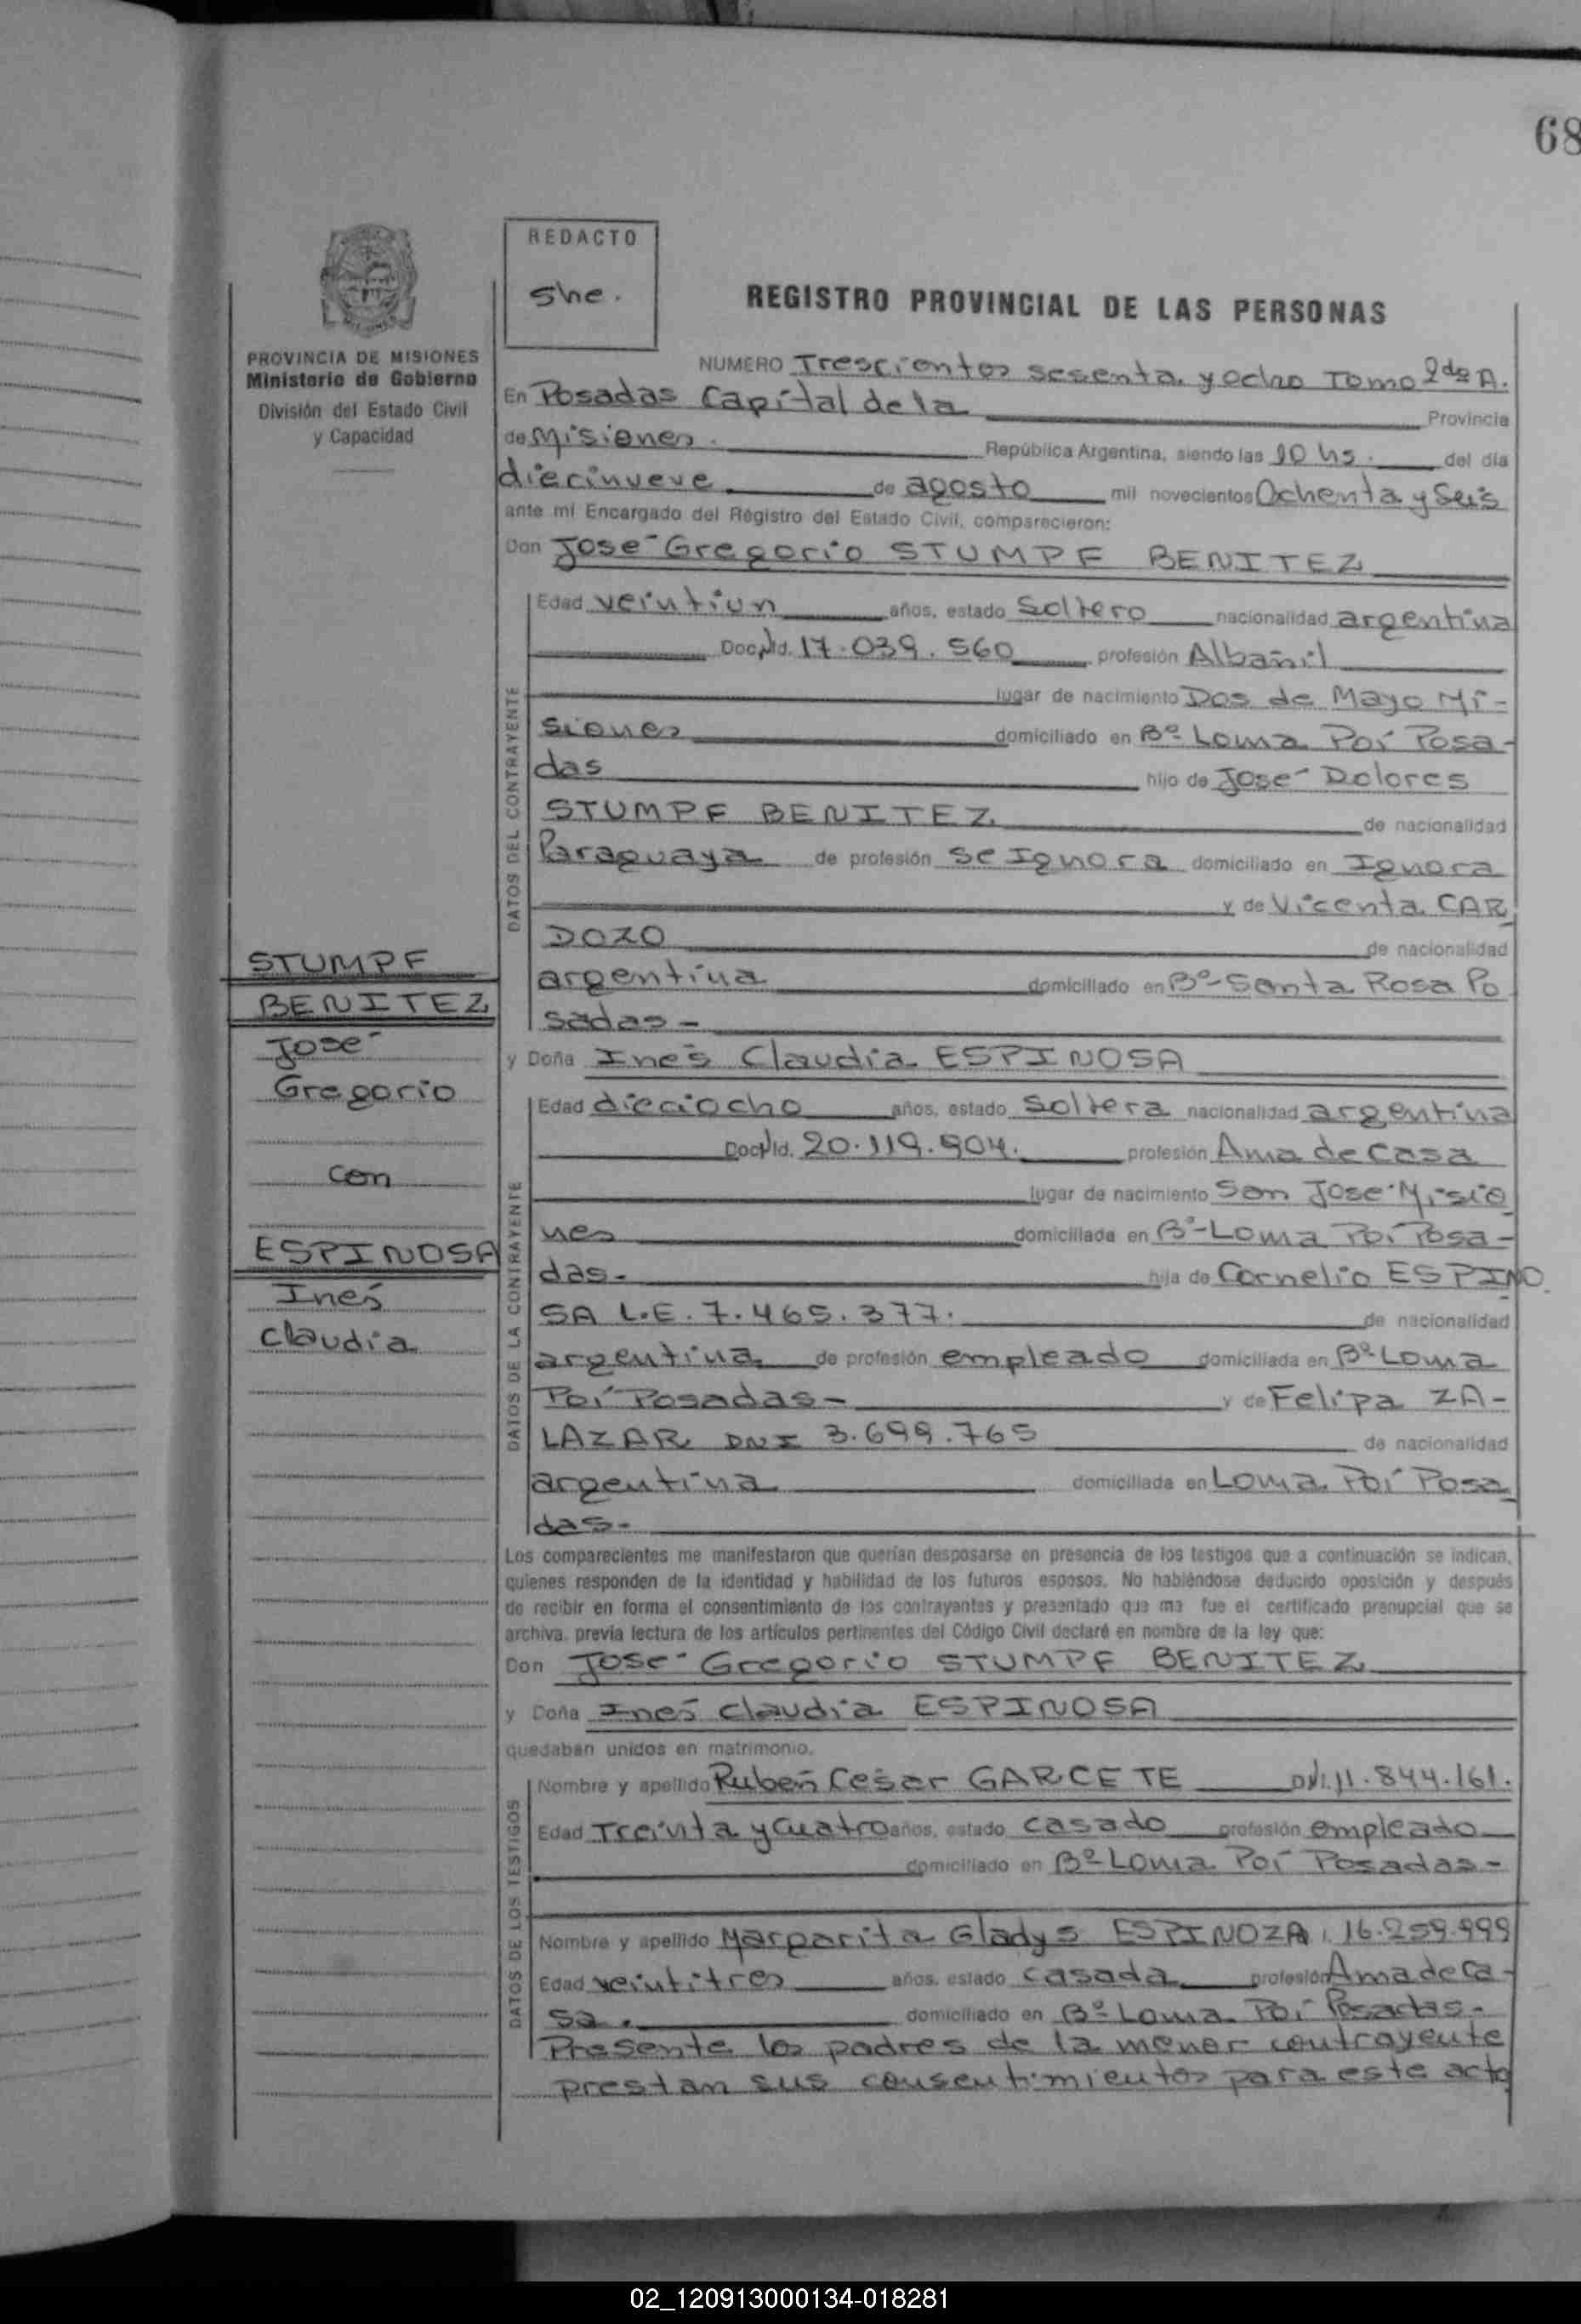 68
REDACTO
She.
REGISTRO PROVINCIAL DE LAS PERSONAS
PROVINCIA DE MISIONES
Ministerio de Gobierno
División del Estado Civil
y Capacidad
NUMERO Trescientos sesenta y ocho Tomo 2do A.
En Posadas Capital de la Provincia
de Misiones. República Argentina, siendo las 10 hs. del día
diecinueve de agosto mil novecientos Ochenta y Seis
ante mi Encargado del Registro del Estado Civil, comparecieron:
Don José Gregorio STUMPF BENITEZ
DATOS DEL CONTRAYENTE
Edad veintiun años, estado Soltero nacionalidad argentina
Doc. Id. 17.039.560 profesión Albañil
lugar de nacimiento Dos de Mayo Mi-
siones domiciliado en Bº Loma Poí Posa-
das hijo de José Dolores
STUMPF BENITEZ de nacionalidad
Paraguaya de profesión se Ignora domiciliado en Ignora
y de Vicenta CAR
DOZO de nacionalidad
argentina domiciliado en Bº Santa Rosa Po
sadas-
STUMPF
BENITEZ
José
Gregorio
con
ESPINOSA
Inés
Claudia
y Doña Inés Claudia ESPINOSA
DATOS DE LA CONTRAYENTE
Edad dieciocho años, estado Soltera nacionalidad argentina
Doc. Id. 20.119.904. profesión Ama de Casa
lugar de nacimiento San José Misio
nes domiciliada en Bº Loma Poí Posa-
das- hija de Cornelio ESPINO
SA L.E. 7.465.377. de nacionalidad
argentina de profesión empleado domiciliada en Bº Loma
Poí Posadas- y de Felipa ZA-
LAZAR DNI 3.699.765 de nacionalidad
argentina domiciliada en Loma Poí Posa
das-
Los comparecientes me manifestaron que querían desposarse en presencia de los testigos que a continuación se indican,
quienes responden de la identidad y habilidad de los futuros esposos. No habiéndose deducido oposición y después
de recibir en forma el consentimiento de los contrayentes y presentado que me fue el certificado prenupcial que se
archiva, previa lectura de los artículos pertinentes del Código Civil declaré en nombre de la ley que:
Don José Gregorio STUMPF BENITEZ
y Doña Inés Claudia ESPINOSA
quedaban unidos en matrimonio.
DATOS DE LOS TESTIGOS
Nombre y apellido Rubén Cesar GARCETE DNI. 11.844.161.
Edad Treinta y Cuatro años, estado casado profesión empleado
domiciliado en Bº Loma Poí Posadas-
Nombre y apellido Margarita Gladys ESPINOZA, 16.259.999
Edad veintitres años, estado casada profesión Ama de Ca-
sa. domiciliado en Bº Loma Poí Posadas-
Presente los padres de la menor contrayente
prestan sus consentimientos para este acto
02_120913000134-018281